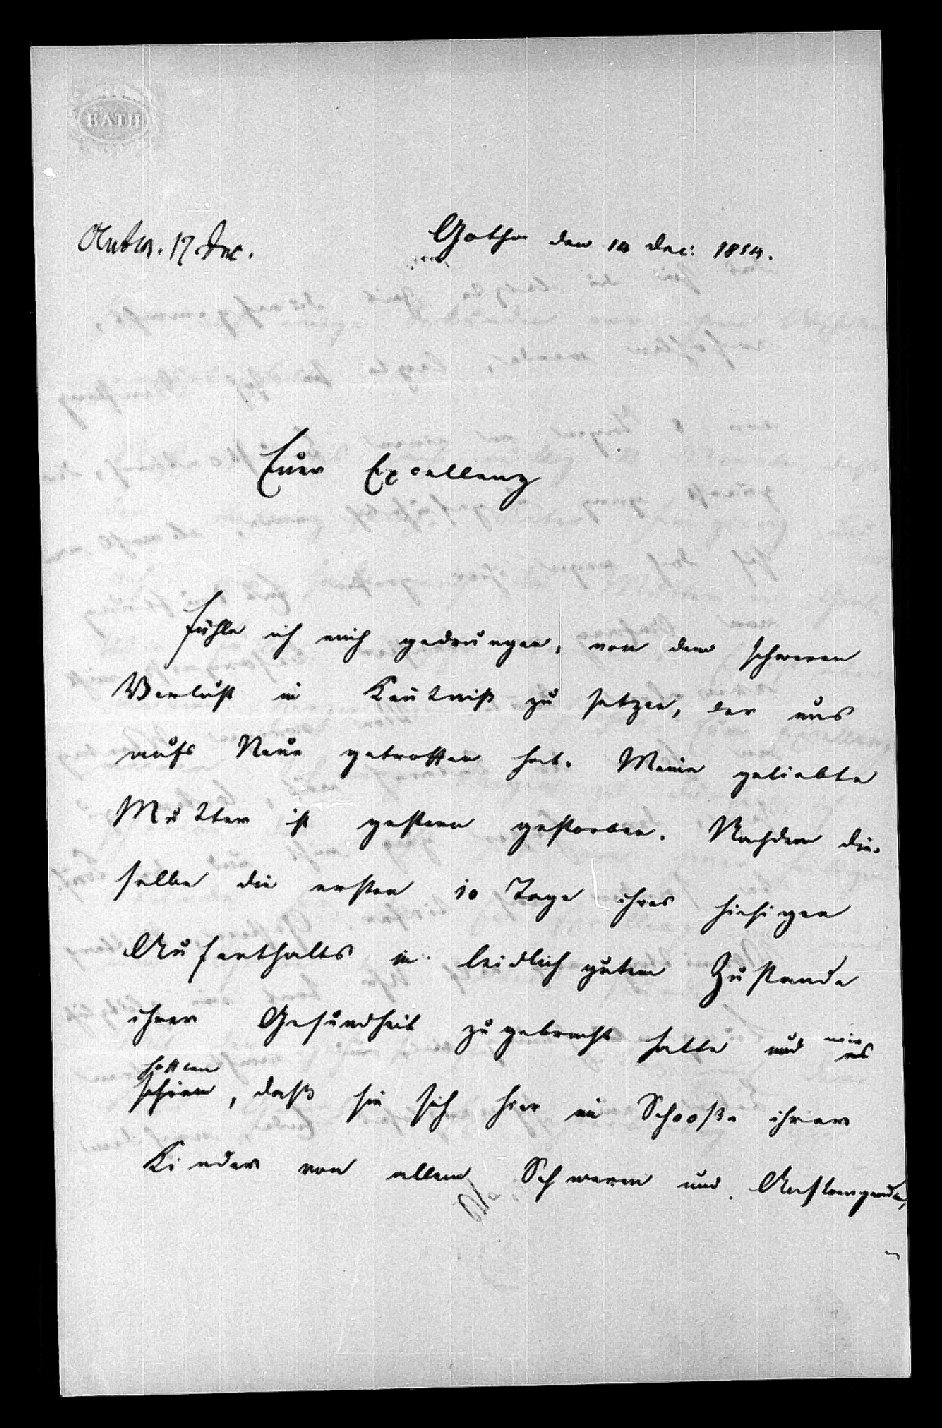 BATH
Antw. 17 Dec.
Gotha den 14 Dec: 1854.
Euer Excellenz
fühle ich mich gedrungen, von dem schweren
Verlust in Kentniß zu setzen, der uns
aufs Neue getroffen hat. Meine geliebte
Mutter ist gestern gestorben. Nachdem die-
selbe die ersten 10 Tage ihres hiesigen
Aufenthalts in leidlich gutem Zustande
ihrer Gesundheit zugebracht hatte und wir
hofften, daß sie sich hier im Schooße ihrer
Kinder von allem Schweren und Anstrengenden,